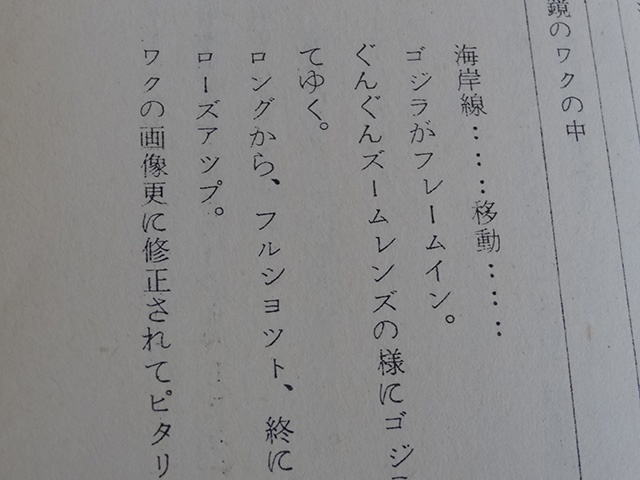 鏡のワクの中
海岸線：：：移動：：：
ゴジラがフレームイン。
ぐんぐんズームレンズの様にゴジラ
てゆく。
ロングから、フルショット、終に
ローズアップ。
ワクの画像更に修正されてピタリ